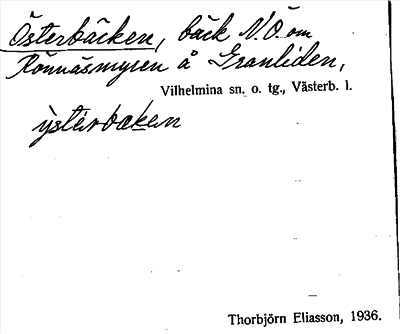 Österbäcken, bäck N.Ö. om
Rönnäsmyren å Granliden,
Vilhelmina sn. o. tg., Västerb. l.
ỳstérbaken
Thorbjörn Eliasson, 1936.